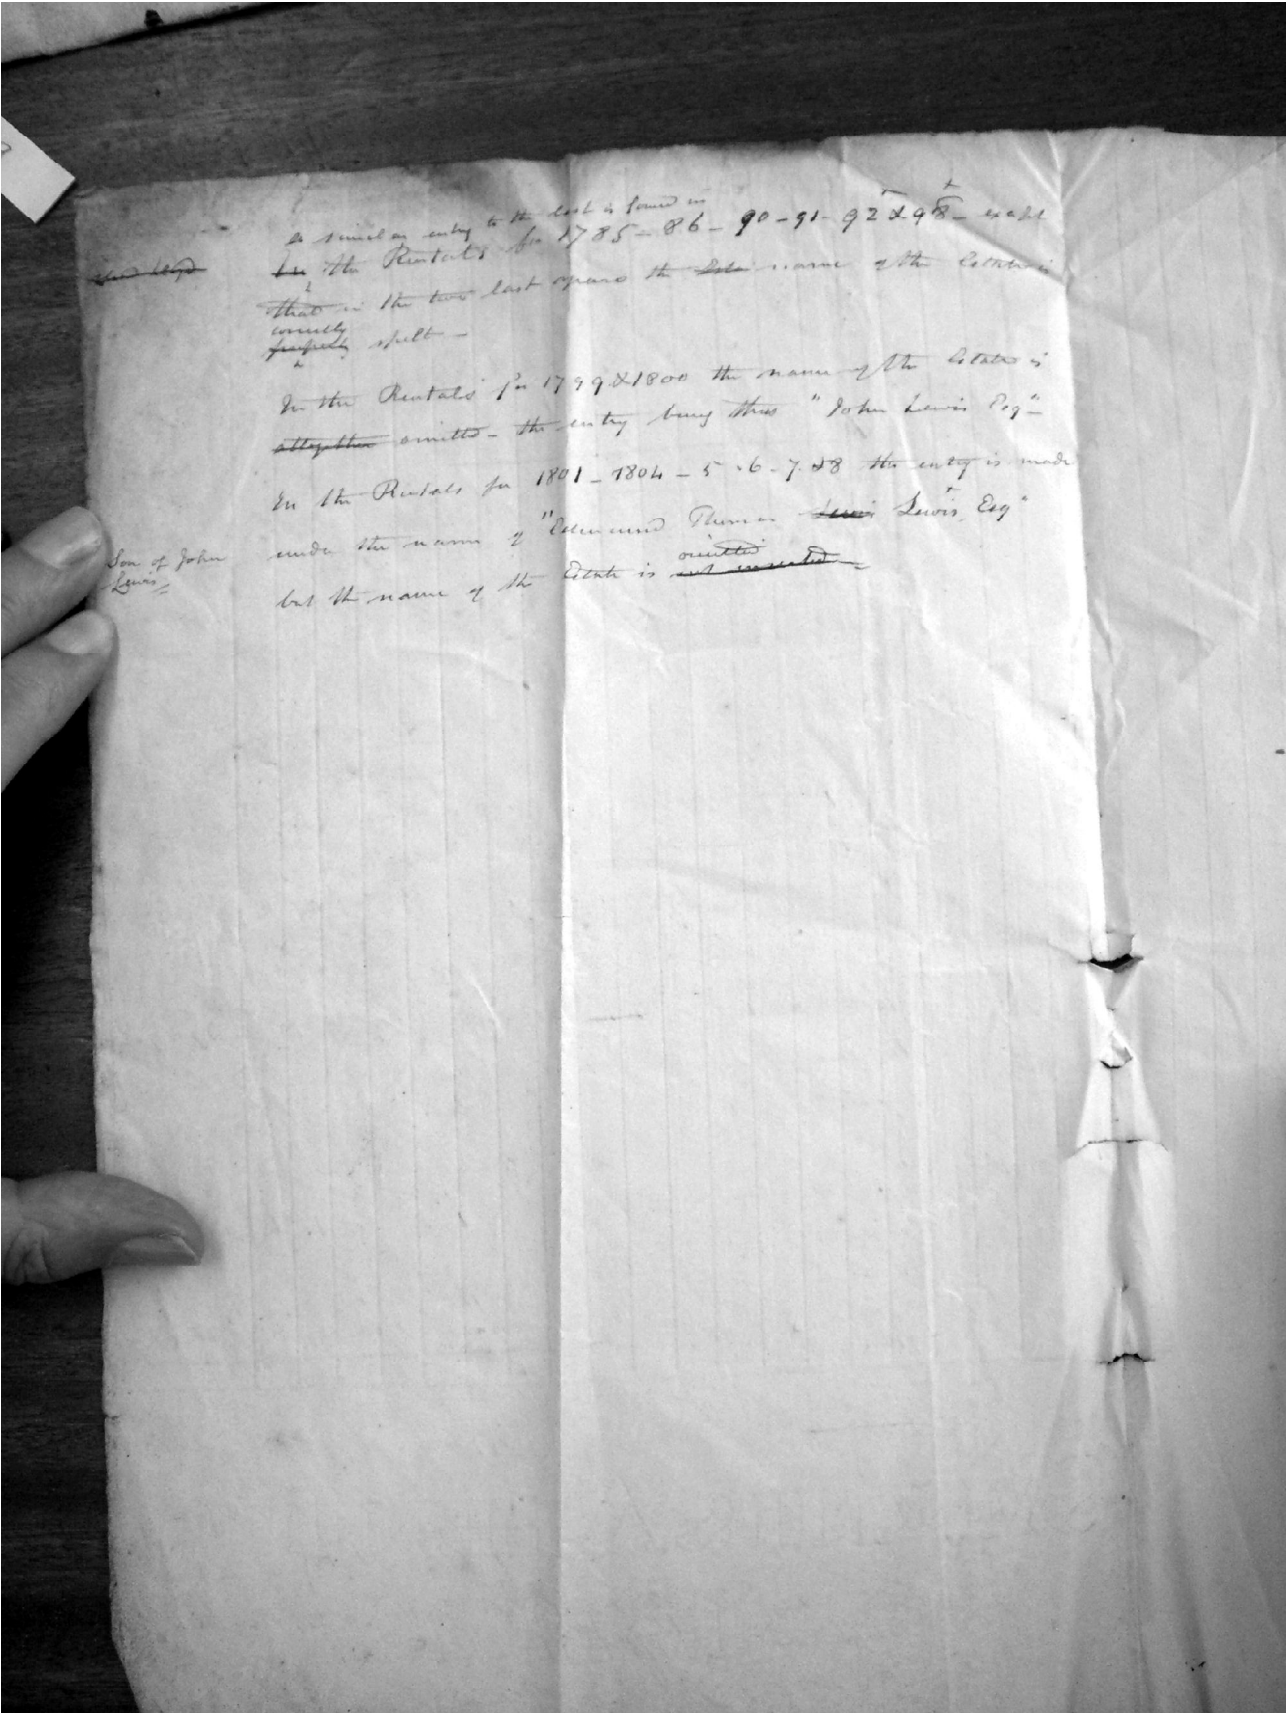 A similar entry to the last is found in
In the Rentals for 1785 - 86 - 90 - 91 - 92 & 98 - except
that in the two last years the Esta name of the Estate is
correctly
properly spelt -
In the Rentals for 1799 & 1800 the name of the Estate is
altogether omitted - the entry being thus "John Lewis Esq"
In the Rentals for 1801 - 1804 - 5 - 6 - 7 & 8 the entry is made
under the name of "Edmund Thomas Lewis Lewis Esq"
Son of John
Lewis
omitted
but the name of the Estate is not inserted